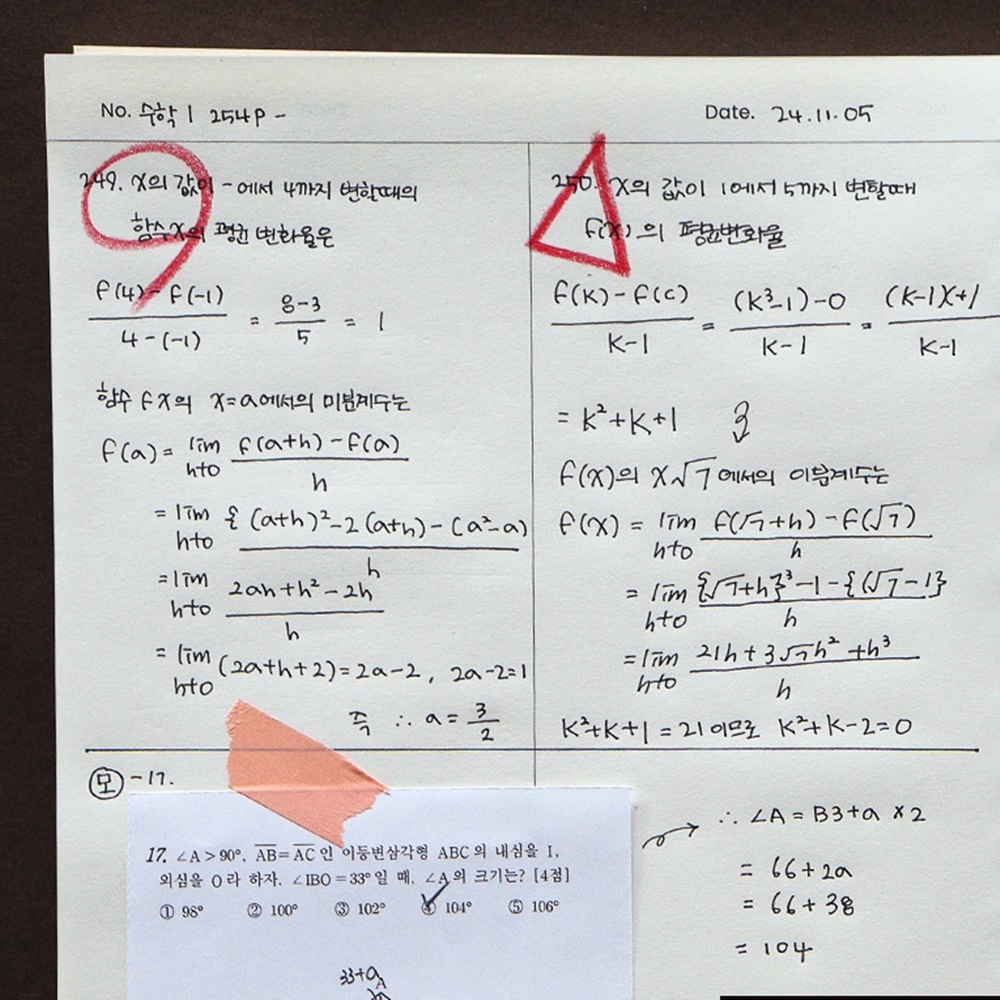 No. 수학 1 254P -
Date. 24.11.05
249. x의 값이 -에서 4까지 변할때의
함수x의 평균 변화율은
f(4)-f(-1) / 4-(-1) = 8-3 / 5 = 1
함수 fx의 x=a에서의 미분계수는
f(a) = lim h→0 f(a+h)-f(a) / h
= lim h→0 { (a+h)²-2(a+h)-(a²-a) / h
= lim h→0 2ah+h²-2h / h
= lim h→0 (2a+h+2)=2a-2, 2a-2=1
즉 ∴ a = 3/2
250. x의 값이 1에서 5까지 변할때
f(x)의 평균변화율
f(k)-f(c) / k-1 = (k³-1)-0 / k-1 = (k-1)(+1 / k-1
= k²+k+1
f(x)의 x√7에서의 미분계수는
f(x) = lim h→0 f(√7+h)-f(√7) / h
= lim h→0 {√7+h}³-1-{(√7-1} / h
= lim h→0 21h+3√7h²+h³ / h
k²+k+1=21이므로 k²+k-2=0
모 -17.
17. ∠A>90°, AB=AC인 이등변삼각형 ABC의 내심을 I,
외심을 O라 하자. ∠IBO=33°일 때, ∠A의 크기는? [4점]
① 98° ② 100° ③ 102° ④ 104° ⑤ 106°
33+a
A
∴ ∠A = B3+a ×2
= 66+2a
= 66+38
= 104